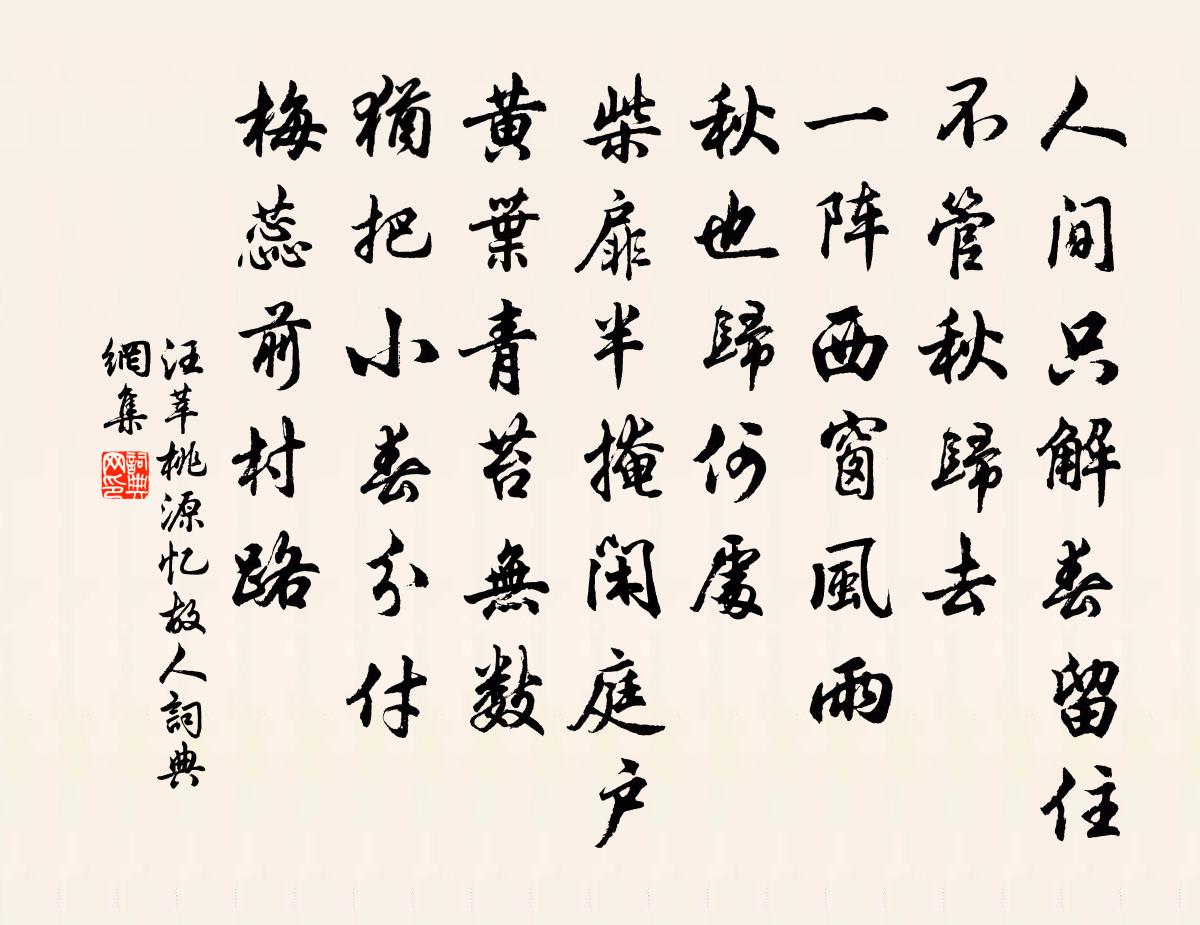 人间只解春留住
不管秋歸去
一阵西窗風雨
秋也歸何處
柴扉半掩閑庭户
黄葉青苔無数
猶把小春分付
梅蕊前村路
汪莘桃源忆故人詞典
網集
詞典
网印